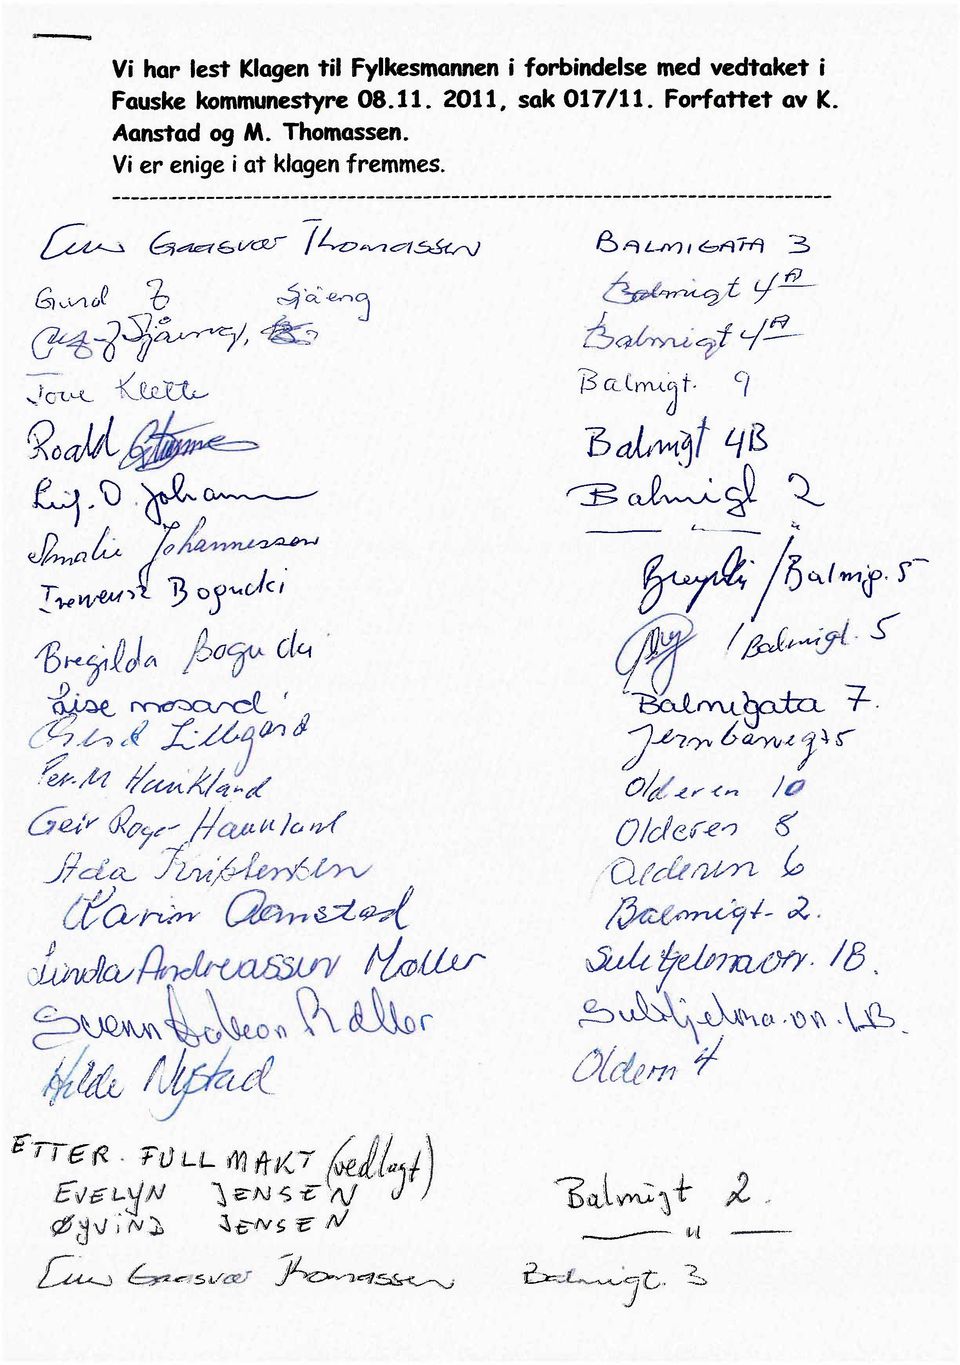 Vi har lest Klagen til Fylkesmannen i forbindelse med vedtaket i
Fauske kommunestyre 08.11. 2011, sak 017/11. Forfattet av K.
Aanstad og M. Thomassen.
Vi er enige i at klagen fremmes.
Gaasvær Thomassen BALMIGATA 3
Gund Sjåeng Balmigt 4A
Balmigt 4A
Tove Klette Balmigt. 9
Roald Balmigt 4B
Leif. O. Johann Balmigt 2
Amalie Johannessen — " —
Ireneusz Bogucki / Balmig. 5
Bregilda Bogucki / Balmigt. 5
Lise mosand Balmigata 7.
Lillegård Jernbanegt 5
Per. M Haukland Olderen 10
Geir Roger Haukland Olderen 8
Ada Kristensen Olderen 6
Karin Aanstad Balmigt. 2.
Linda Andreassen Møller Sulitjelmavn. 1B.
Svenn Møller Sulitjelma.vn. 1B.
Hilde Nystad Oldern 4
ETTER. FULLMAKT (vedlagt)
EVELYN JENSEN Balmigt 2.
ØYVIND JENSEN — " —
Gaasvær Thomassen Balmigt. 3